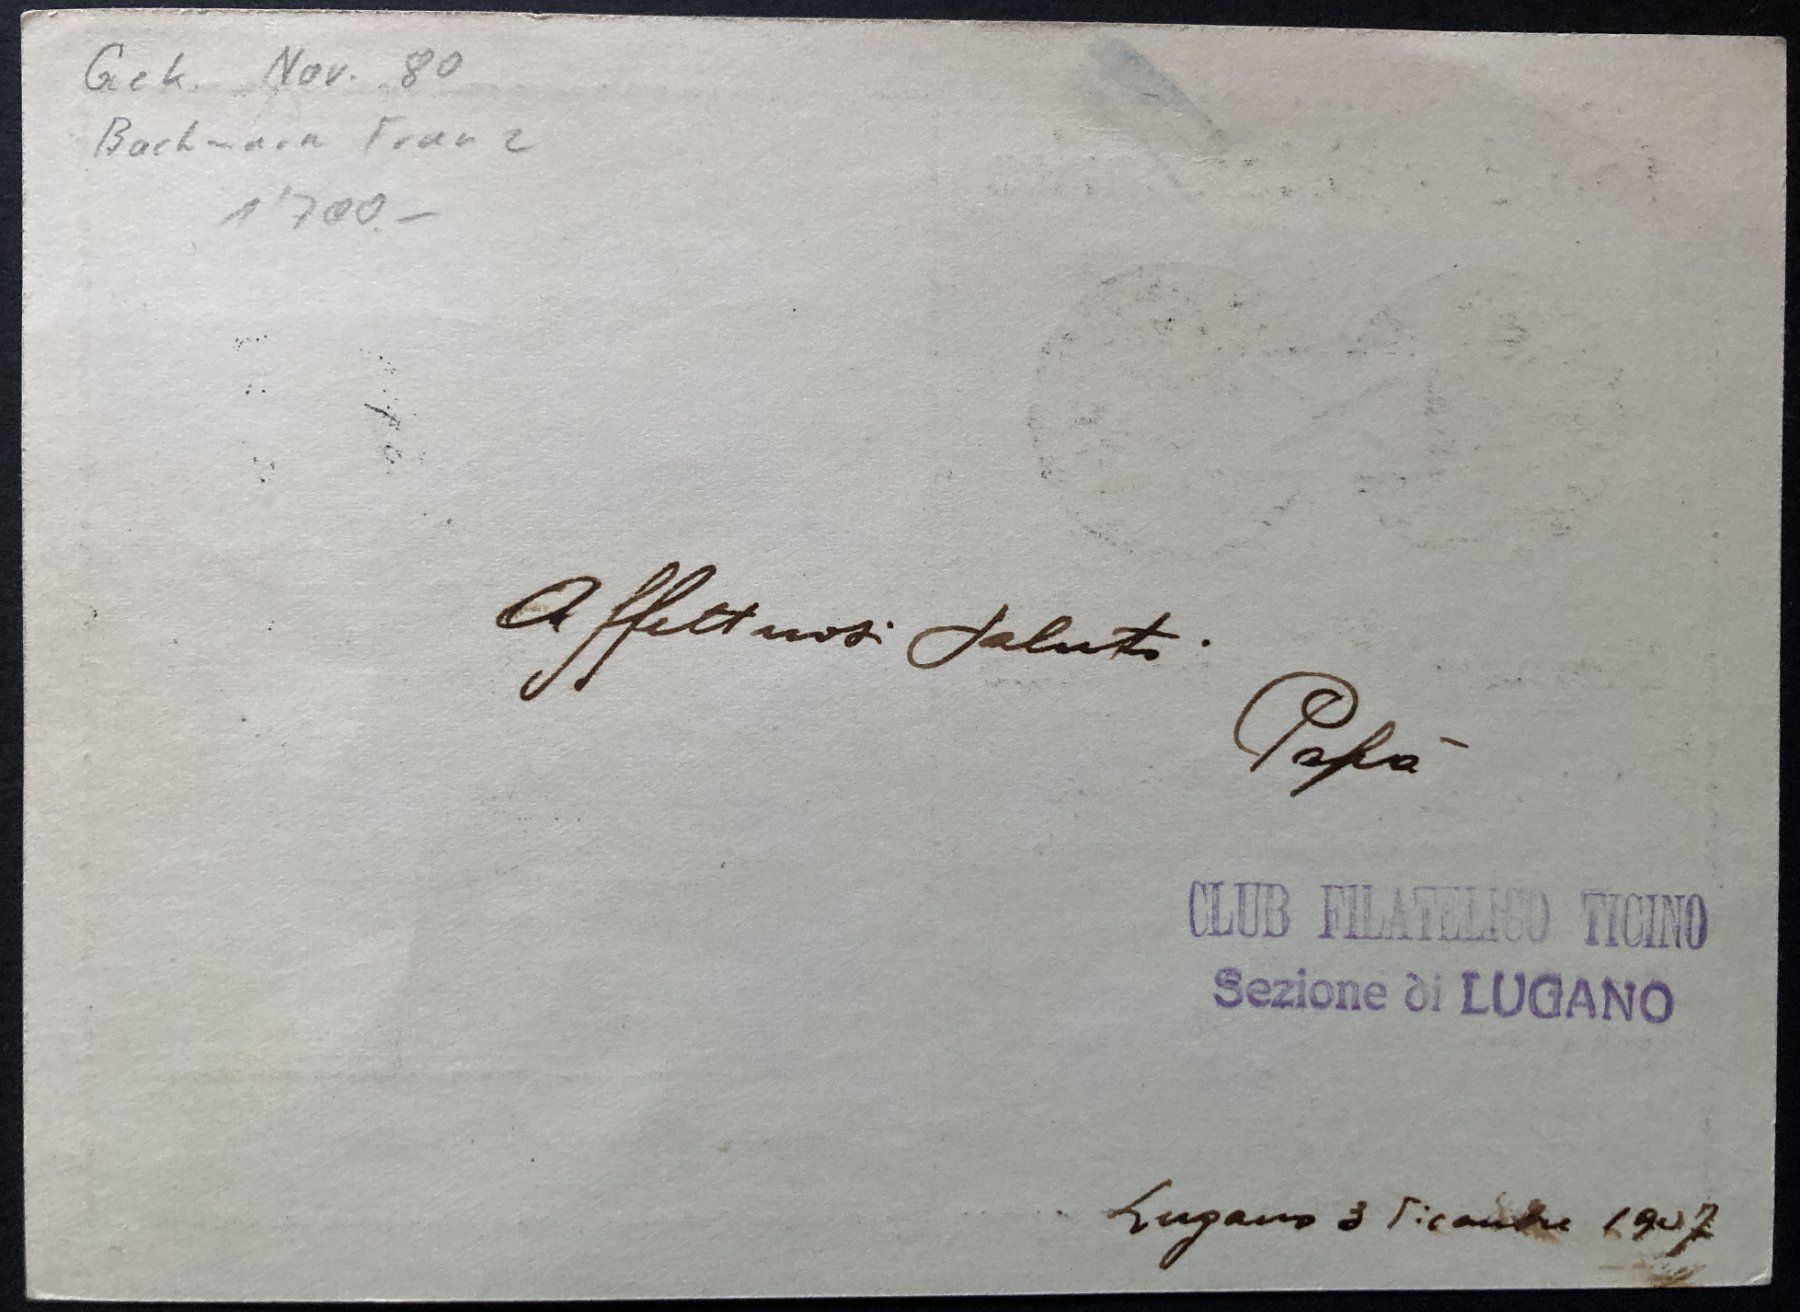 Gek. Nov. 80
Bachmann Franz
1'700.-
Affettuosi saluti.
Papà
CLUB FILATELICO TICINO
Sezione di LUGANO
Lugano 3 Dicembre